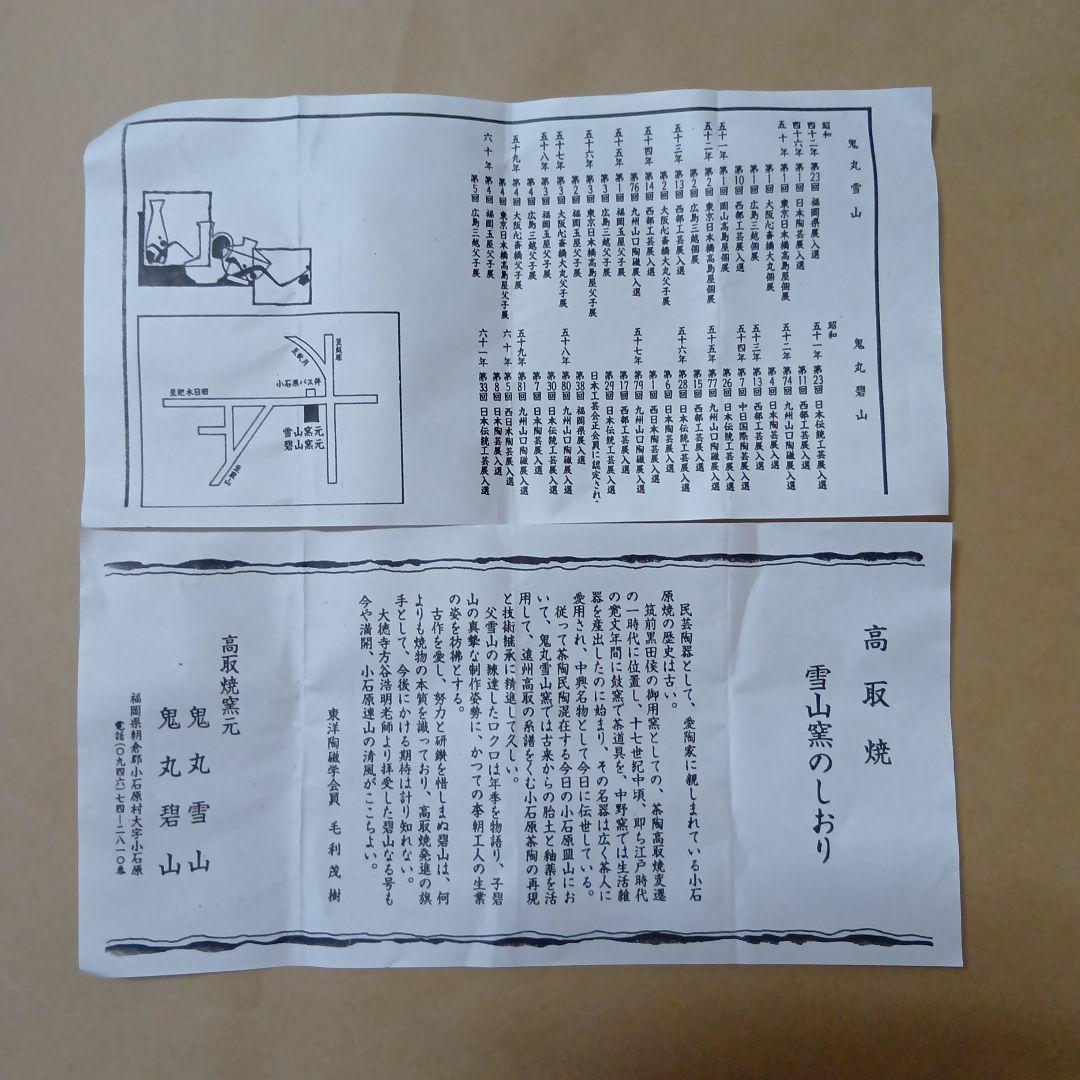 鬼丸雪山
昭和
四十二年 第23回 福岡県展入選
四十六年 第1回 日本陶芸展入選
五十年 第1回 東京日本橋高島屋個展
第1回 大阪心斎橋大丸個展
第1回 広島三越個展
第10回 西部工芸展入選
五十一年 第1回 岡山高島屋個展
五十二年 第2回 東京日本橋高島屋個展
第2回 広島三越個展
五十三年 第13回 西部工芸展入選
第2回 大阪心斎橋大丸父子展
五十四年 第14回 西部工芸展入選
第76回 九州山口陶磁展入選
五十五年 第1回 福岡玉屋父子展
第3回 広島三越父子展
五十六年 第3回 東京日本橋高島屋父子展
第2回 福岡玉屋父子展
五十七年 第3回 大阪心斎橋大丸父子展
五十八年 第3回 福岡玉屋父子展
第4回 広島三越父子展
五十九年 第4回 大阪心斎橋父子展
第4回 東京日本橋高島屋父子展
六十年 第4回 福岡玉屋父子展
第5回 広島三越父子展
鬼丸碧山
昭和
五十一年 第23回 日本伝統工芸展入選
第11回 西部工芸展入選
五十二年 第74回 九州山口陶磁展入選
第4回 日本陶芸展入選
五十三年 第13回 西部工芸展入選
五十四年 第7回 中日国際陶芸展入選
第26回 日本伝統工芸展入選
五十五年 第77回 九州山口陶磁展入選
第15回 西部工芸展入選
五十六年 第28回 日本伝統工芸展入選
第6回 日本陶芸展入選
第1回 西日本陶芸展入選
五十七年 第79回 九州山口陶磁展入選
第17回 西部工芸展入選
第29回 日本伝統工芸展入選
日本工芸会正会員に認定される
第38回 福岡県展入選
五十八年 第80回 九州山口陶磁展入選
第30回 日本伝統工芸展入選
第7回 日本陶芸展入選
五十九年 第81回 九州山口陶磁展入選
六十年 第5回 西日本陶芸展入選
第8回 日本陶芸展入選
六十一年 第33回 日本伝統工芸展入選
至飯塚
至秋月
小石原バス停
至杷木日田
雪山窯元
碧山窯元
高取焼
雪山窯のしおり
民芸陶器として、愛陶家に親しまれている小石
原焼の歴史は古い。
筑前黒田侯の御用窯としての、茶陶高取焼変遷
の一時代に位置し、十七世紀中頃、即ち江戸時代
の寛文年間に鼓窯で茶道具を、中野窯では生活雑
器を産出したのに始まり、その名器は広く茶人に
愛用され、中興名物として今日に伝世している。
従って茶陶民陶混在する今日の小石原皿山にお
いて、鬼丸雪山窯では古来からの胎土と釉薬を活
用して、遠州高取の系譜をくむ小石原茶陶の再現
と技術継承に精進して久しい。
父雪山の練達したロクロは年季を物語り、子碧
山の真摯な制作姿勢に、かつての李朝工人の生業
の姿を彷彿とする。
古作を愛し、努力と研鑽を惜しまぬ碧山は、何
よりも焼物の本質を識っており、高取焼発進の旗
手として、今後にかける期待は計り知れない。
大徳寺方谷浩明老師より拝受した碧山なる号も
今や満開、小石原連山の清風がここちよい。
東洋陶磁学会員 毛利茂樹
高取焼窯元
鬼丸雪山
鬼丸碧山
福岡県朝倉郡小石原村大字小石原
電話(〇九四六)七四-二八一〇番